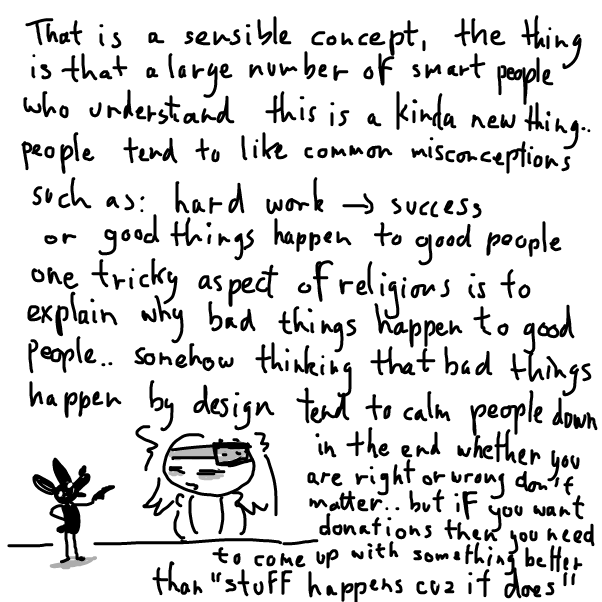 That is a sensible concept, the thing
is that a large number of smart people
who understand this is a kinda new thing..
people tend to like common misconceptions
such as: hard work → success
or good things happen to good people
one tricky aspect of religions is to
explain why bad things happen to good
people.. somehow thinking that bad things
happen by design tend to calm people down
in the end whether you
are right or wrong don't
matter.. but if you want
donations then you need
to come up with something better
than "stuff happens cuz it does"